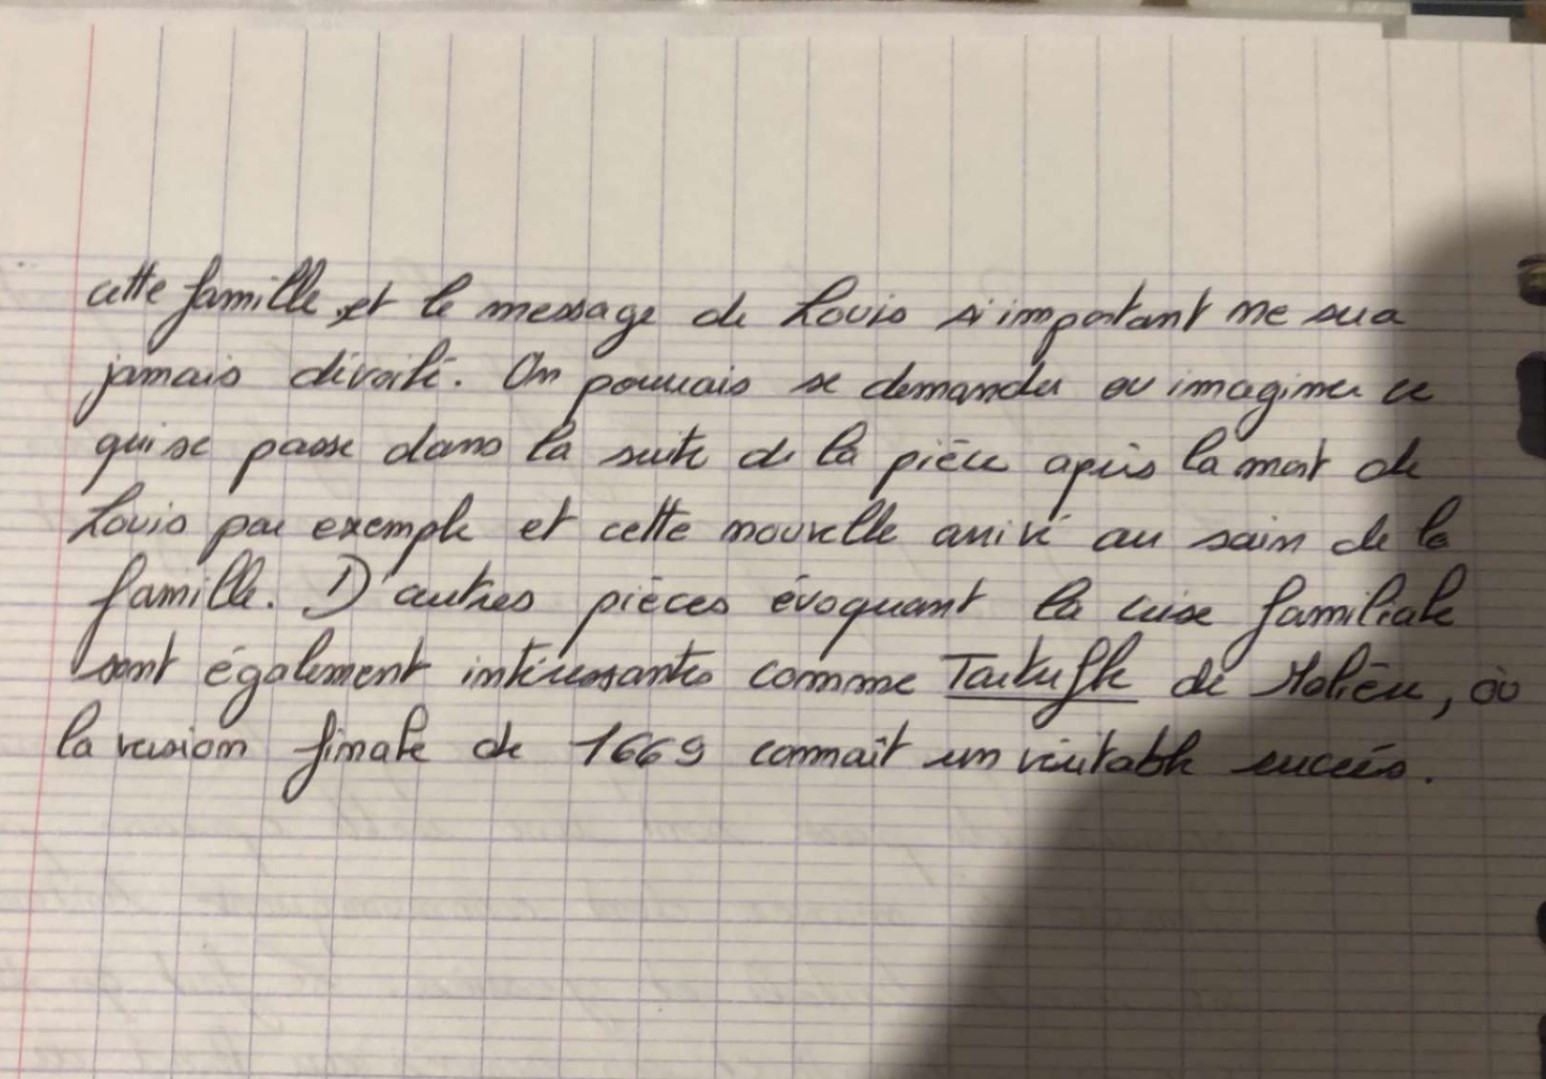 cette famille, et le message de Louis si important ne sera
jamais dévoilé. On pourrais se demander ou imaginer ce
qui se passe dans la suite de la pièce après la mort de
Louis par exemple et cette nouvelle arrivé au sain de la
famille. D'autres pièces évoquant la crise familiale
sont également intéressantes comme Tartuffe de Molière, où
la version finale de 1669 connait un véritable succès.